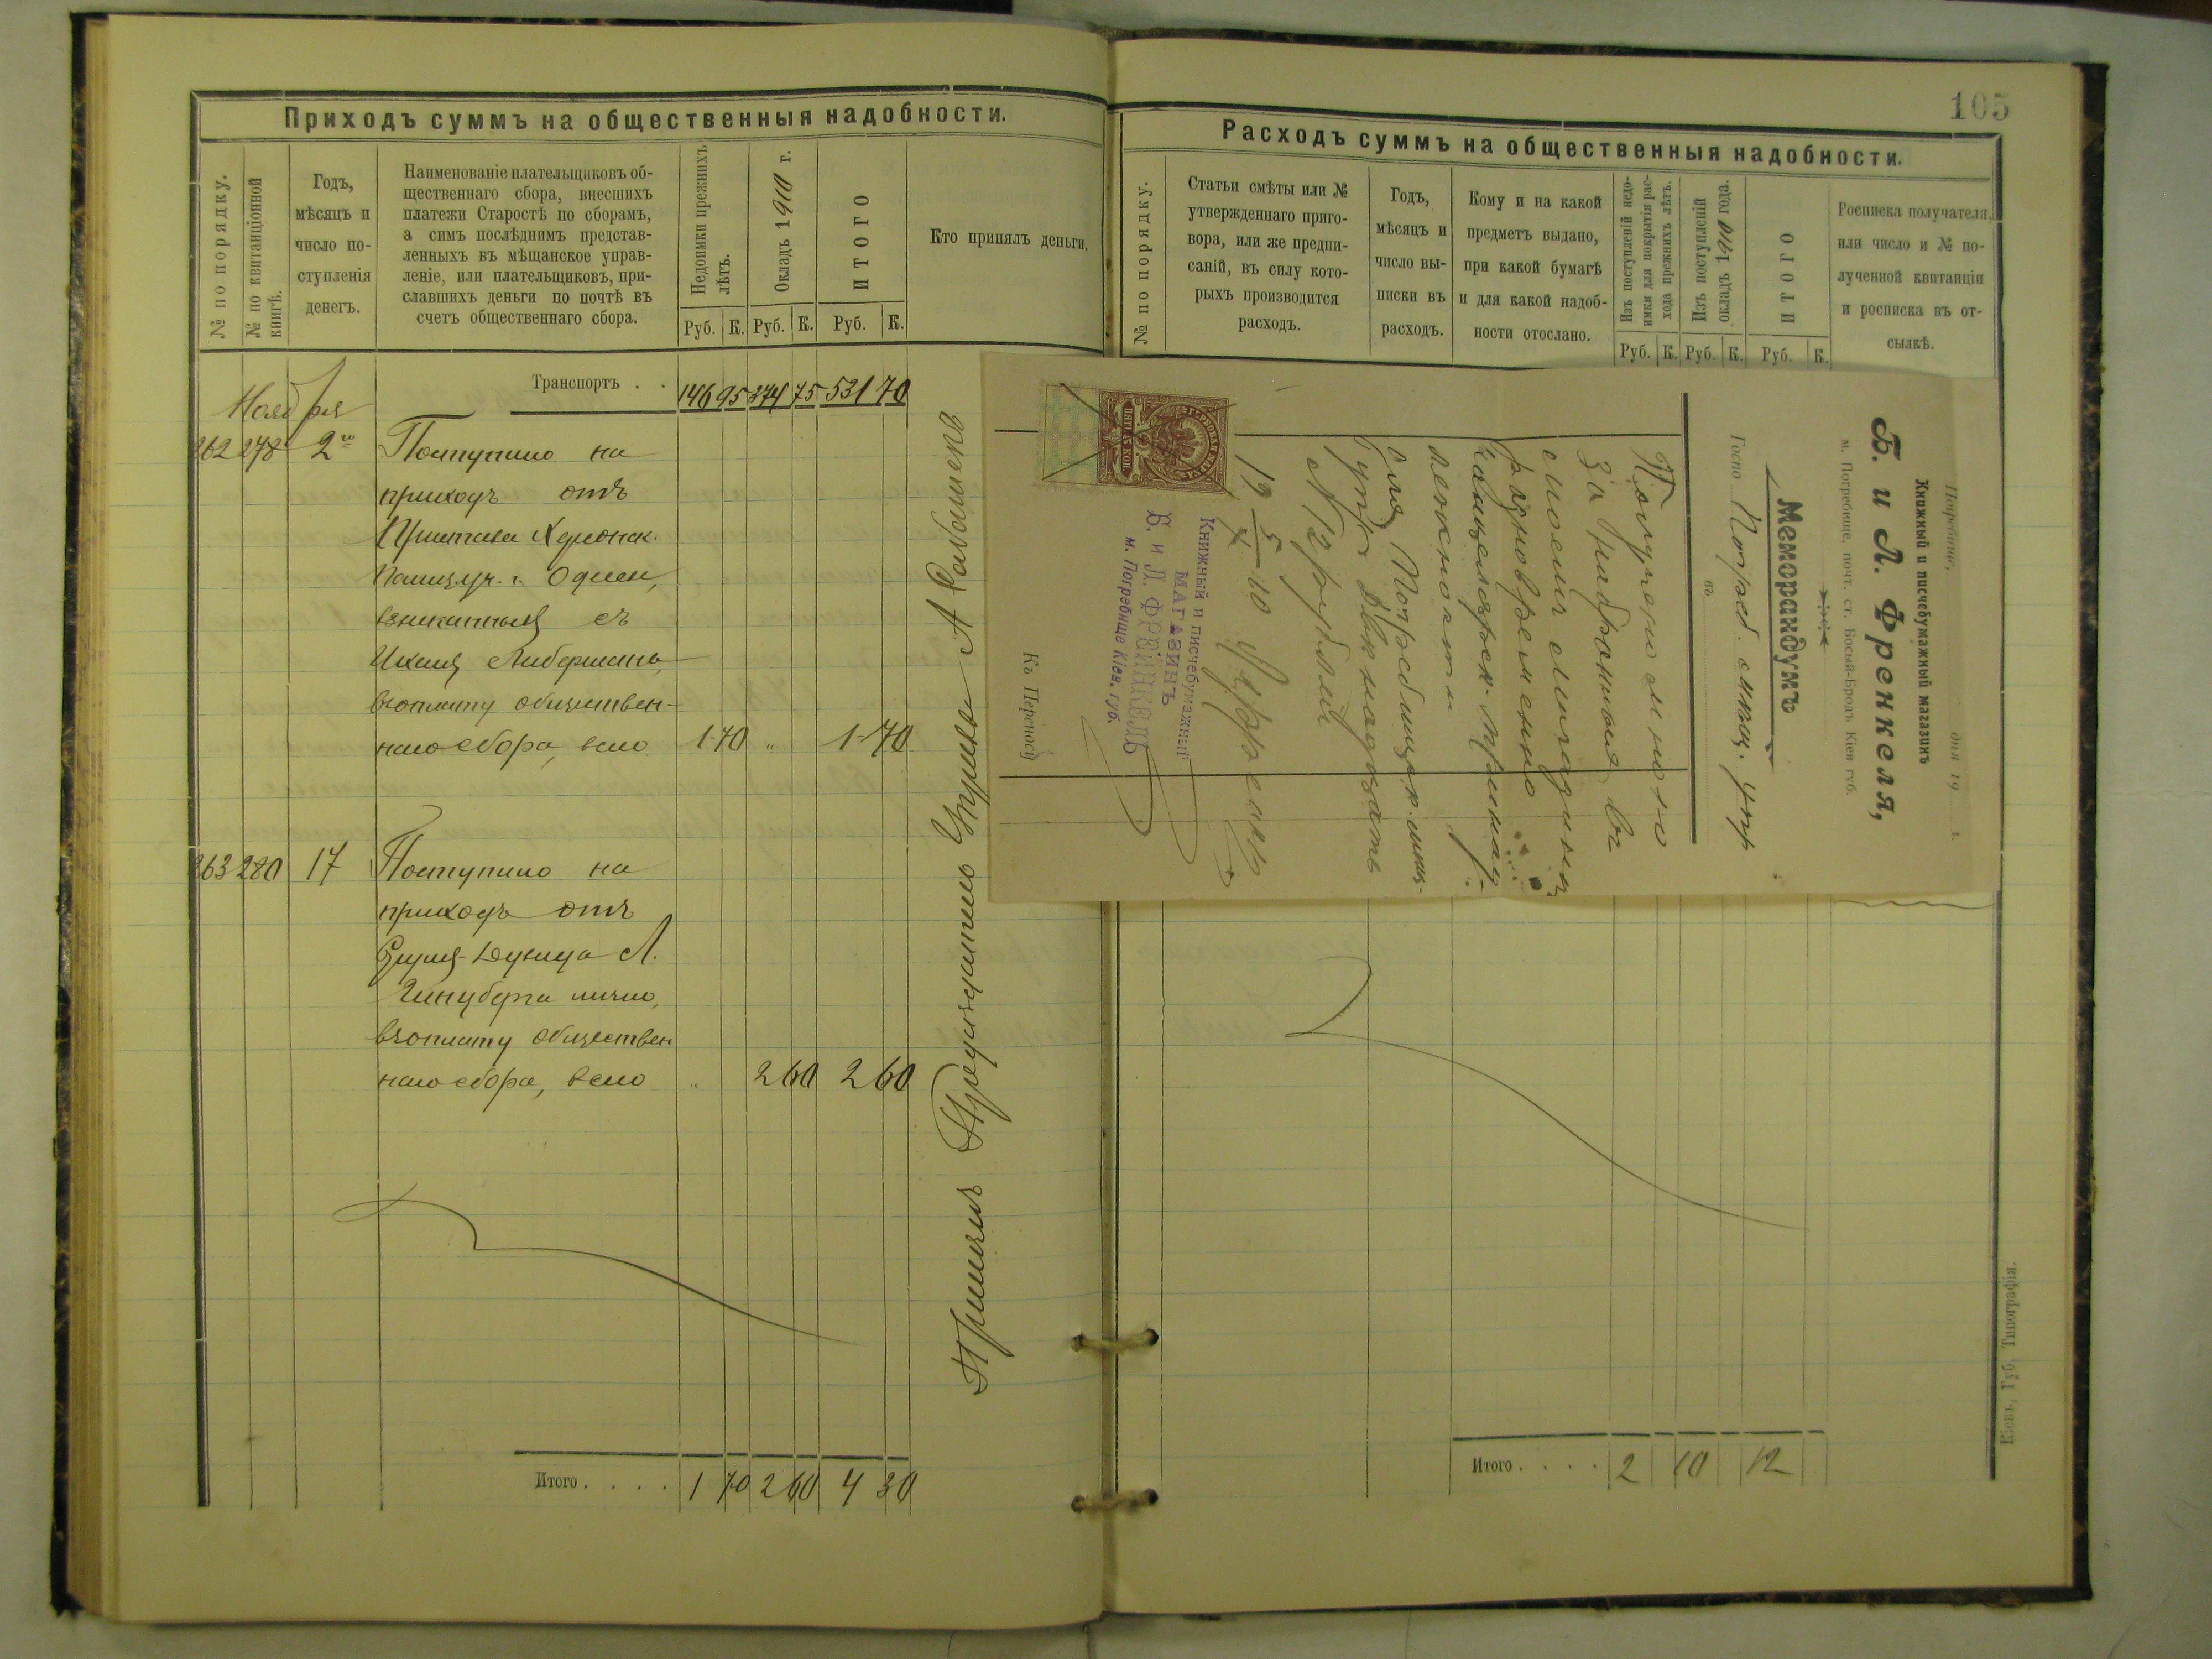 Приходъ суммъ на общественныя надобности.
№ по порядку.
№ по квитанціонной
книгѣ.
Годъ,
мѣсяцъ и
число по-
ступленія
денегъ.
Наименованіе плательщиковъ об-
щественнаго сбора, внесшихъ
платежи Старостѣ по сборамъ,
а симъ послѣднимъ представ-
ленныхъ въ мѣщанское управ-
леніе, или плательщиковъ, при-
славшихъ деньги по почтѣ въ
счетъ общественнаго сбора.
Недоимки прежнихъ
лѣтъ.
Руб. К.
Окладъ 1910 г.
Руб. К.
ИТОГО
Руб. К.
Кто принялъ деньги.
Транспортъ . . 146 95 374 75 531 70
Ноября
262 278 2го Поступило на
приходъ отъ
Пристава Херсонск.
полиц. уч. г. Одессы,
взысканныя съ
Либермана,
въ уплату обществен-
наго сбора, всего 1 70 " 1 70
263 280 17 Поступило на
приходъ отъ
Л.
Гинзберга лично,
въ уплату обществен
наго сбора, всего " 2 60 2 60
Итого . . . . 1 70 2 60 4 30
Принялъ Предсѣдатель Управы А
105
Расходъ суммъ на общественныя надобности.
№ по порядку.
Статьи смѣты или №
утвержденнаго приго-
вора, или же предпи-
саній, въ силу кото-
рыхъ производится
расходъ.
Годъ,
мѣсяцъ и
число вы-
писки въ
расходъ.
Кому и на какой
предметъ выдано,
при какой бумагѣ
и для какой надоб-
ности отослано.
Изъ поступленій недо-
имки для покрытія рас-
хода прежнихъ лѣтъ.
Руб. К.
Изъ поступленій
окладъ 1910 года.
Руб. К.
ИТОГО
Руб. К.
Росписка получателя,
или число и № по-
лученной квитанціи
и росписка въ от-
сылкѣ.
Погребище, дня 19 г.
Книжный и писчебумажный магазинъ
Б. и Л. Френкеля,
м. Погребище, почт. ст. Босый-Бродъ Кіев губ.
Меморандумъ
Госпо Погреб. мѣщ. Упр
въ
Получено мною
за набранныя въ
моемъ магазинѣ
разновременно
канцелярск. принад-
лежности
для Погребищск. мѣщ.
Упр. двѣнадцать
12 рублей
19 5/X 10 Френкель
ПЯТЬ 5 КОП
Книжный и писчебумажный
МАГАЗИНЪ
Б. и Л. ФРЕНКЕЛЬ
м. Погребище Кіев. губ.
Къ Переносу
Итого . . . . 2 10 12
Кіевъ, Губ. Типографія.